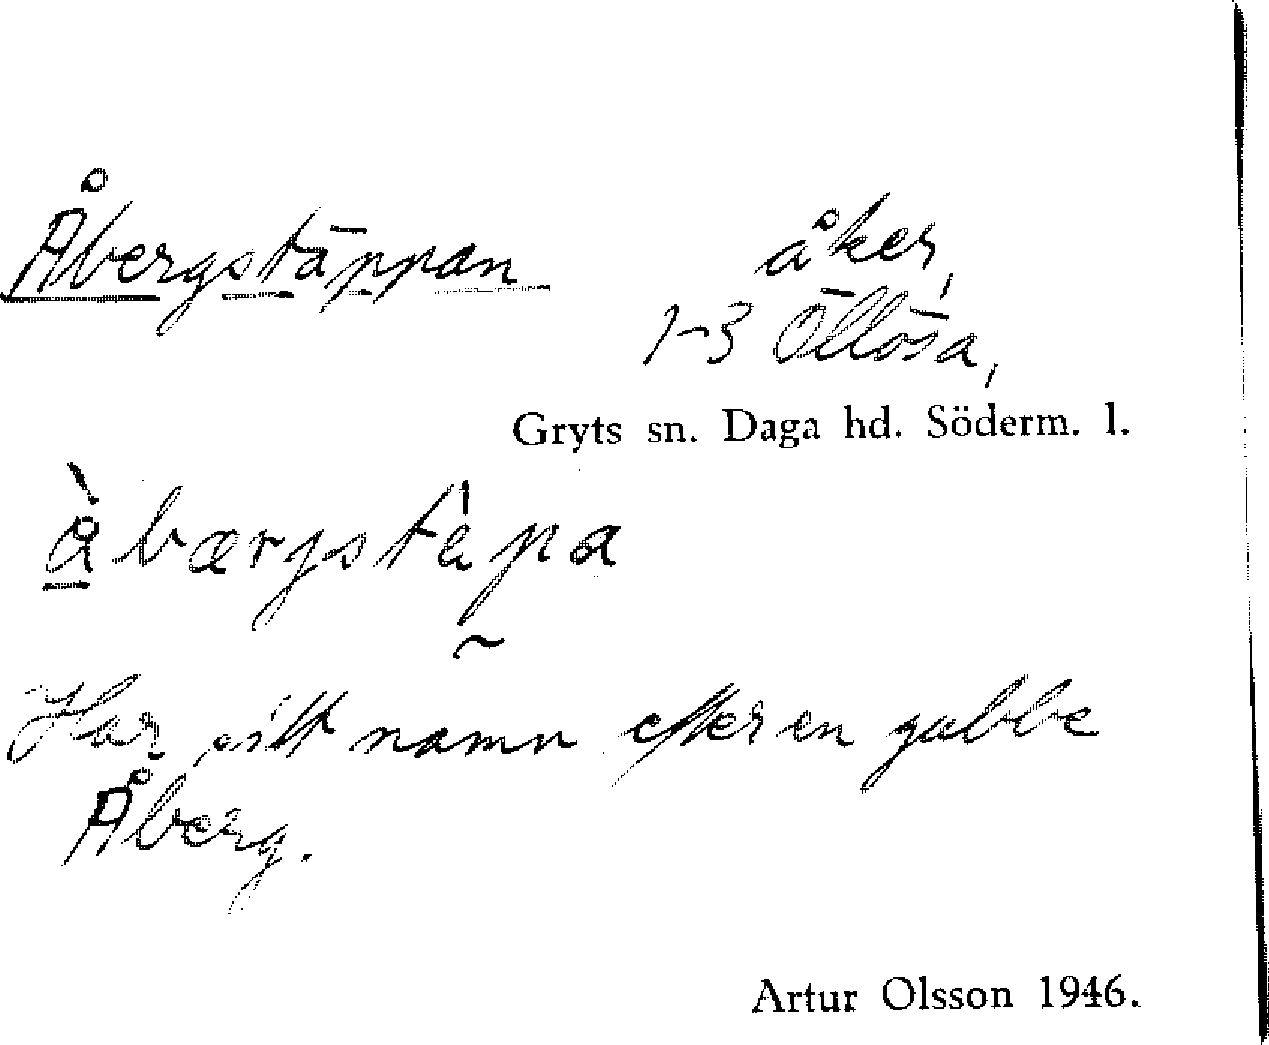 Åbergstäppan
åker,
1-3 Öllösa,
Gryts sn. Daga hd. Söderm. l.
å̀bærgstäpa
Har sitt namn efter en gubbe
Åberg.
Artur Olsson 1946.